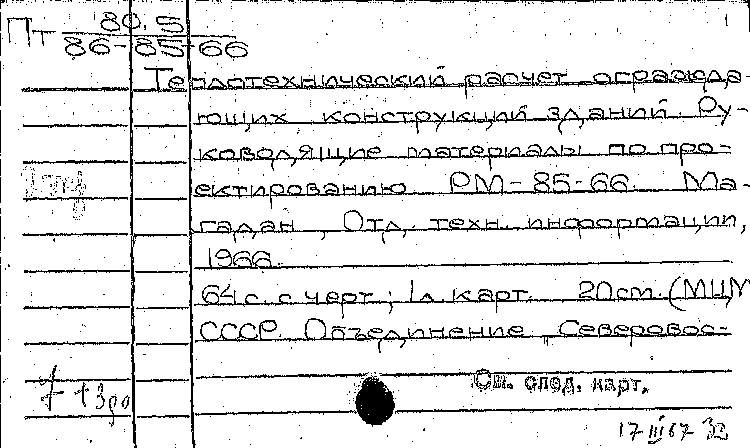 Пт 80.5
86-85-66
Теплотехнический расчет огражда-
ющих конструкций зданий. Ру-
ководящие материалы по про-
ектированию. РМ-85-66. Ма-
гадан, Отд. техн. информации,
1966.
64 с. с черт.; 1 л. карт. 20 см. (МЦМ
СССР. Объединение „Северовос-
См. след. карт.
17 III 67